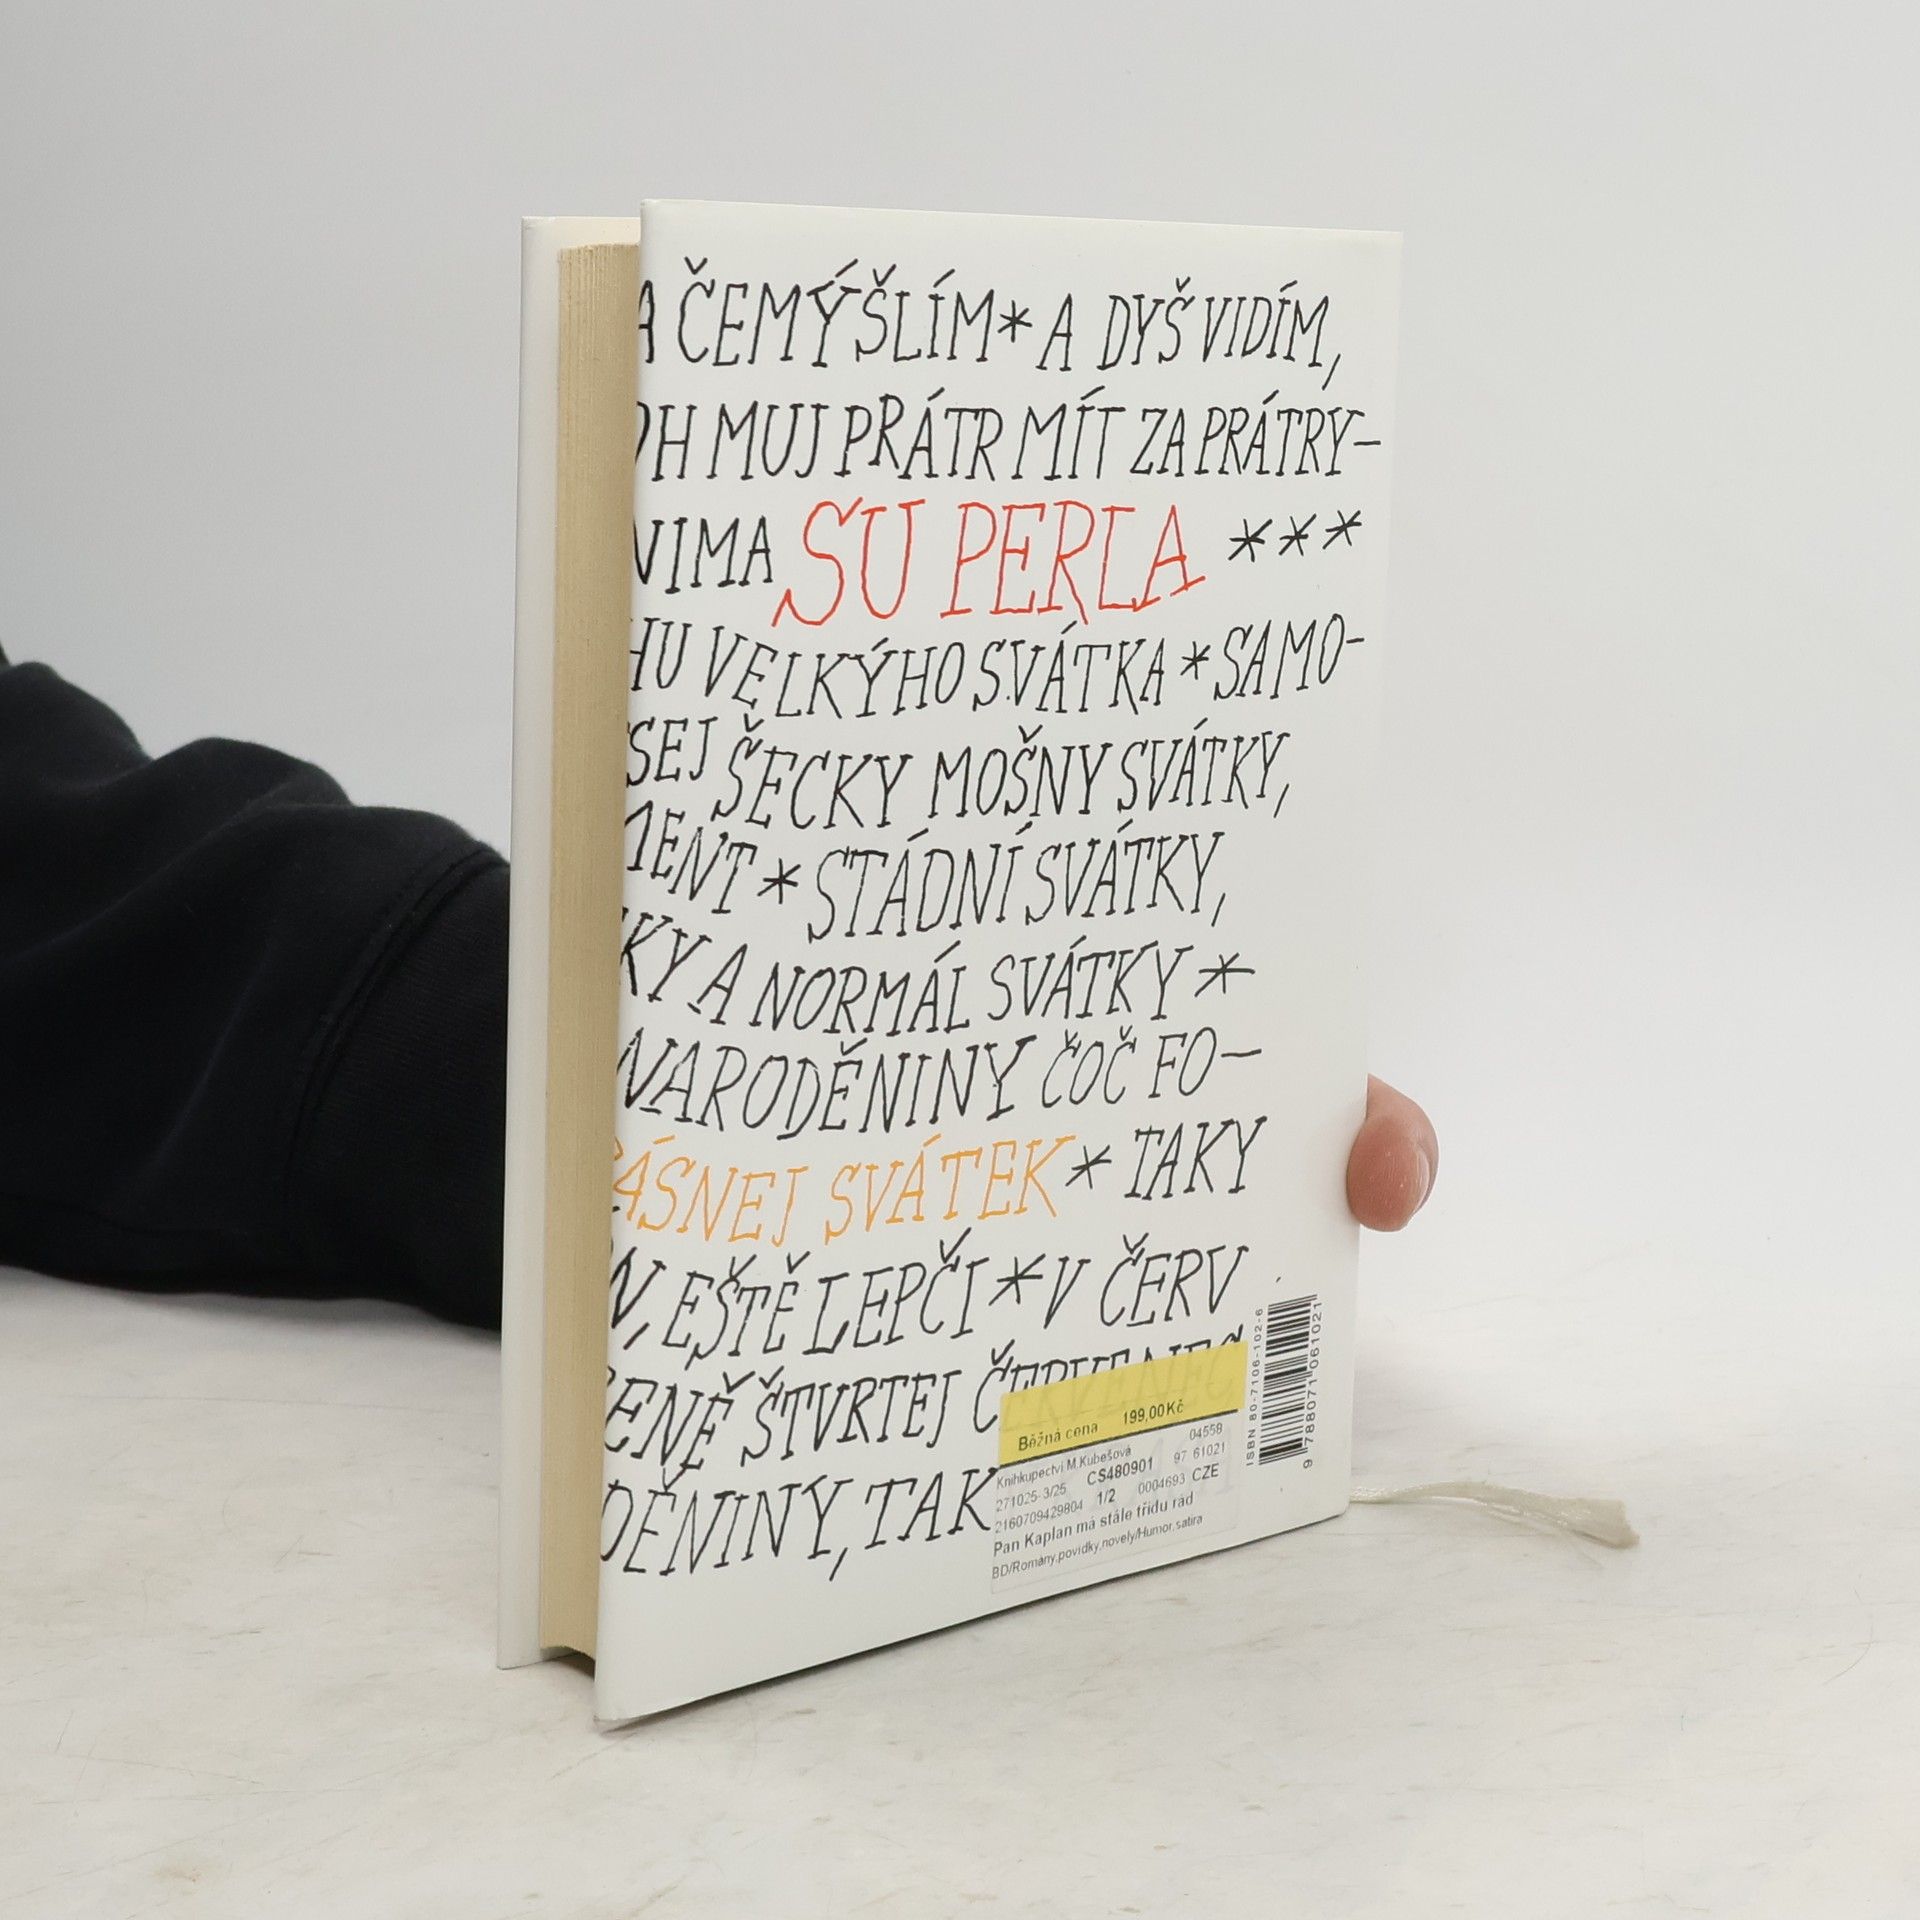 A ČEMÝŠLÍM * A DYŠ VIDÍM,
H MUJ PRÁTR MÍT ZA PRÁTRY-
NIMA SU PERLA ***
HU VELKÝHO SVÁTKA * SAMO-
SEJ ŠECKY MOŠNY SVÁTKY,
MENT * STÁDNÍ SVÁTKY,
KY A NORMÁL SVÁTKY *
NARODĚNINY ČOČ FO-
ÁSNEJ SVÁTEK * TAKY
N, EŠTĚ LEPČI * V ČERV
ENĚ ŠTVRTEJ ČERVENEC
DĚNINY, TAK
Běžná cena 199,00Kč
Knihkupectví M.Kubešová 04558
271025-3/25 CS480901 97 61021
2160709429804 1/2 0004693 CZE
Pan Kaplan má stále třídu rád
BD/Romány,povídky,novely/Humor,satira
ISBN 80-7106-102-6
9 788071 061021